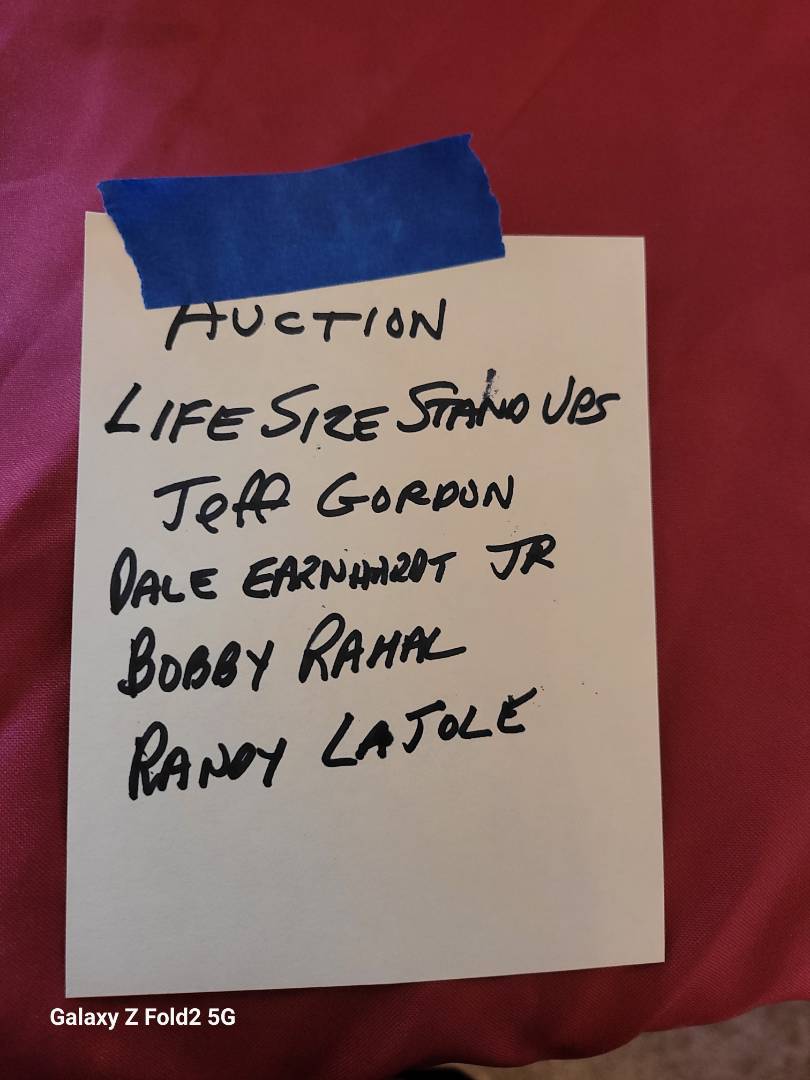 AUCTION
LIFE SIZE STAND UPS
Jeff GORDON
DALE EARNHARDT JR
BOBBY RAHAL
RANDY LAJOLE
Galaxy Z Fold2 5G